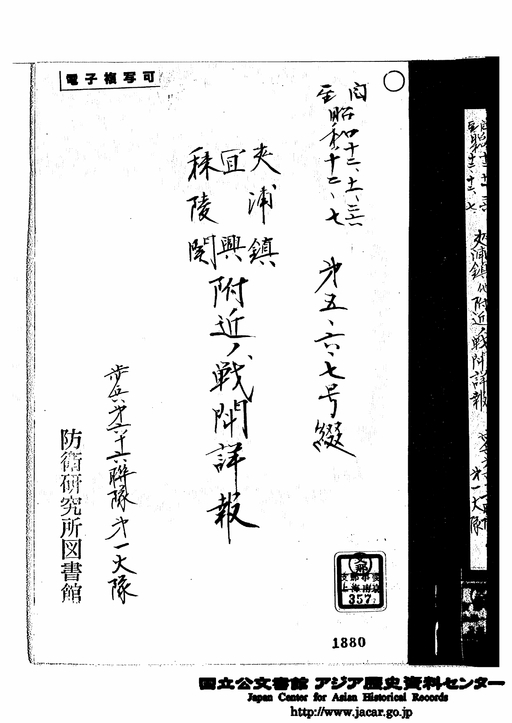 電子複写可
自昭和十二、十一、二六
至昭和十二、十二、七
第五、六、七号綴
夾浦鎮
宜興
秣陵関
附近ノ戦闘詳報
歩兵第六十六聯隊第一大隊
防衛研究所図書館
支那
支那事変
上海南京
357
1880
夾浦鎮外附近ノ戦闘詳報
第一大隊
国立公文書館 アジア歴史資料センター
Japan Center for Asian Historical Records
http://www.jacar.go.jp